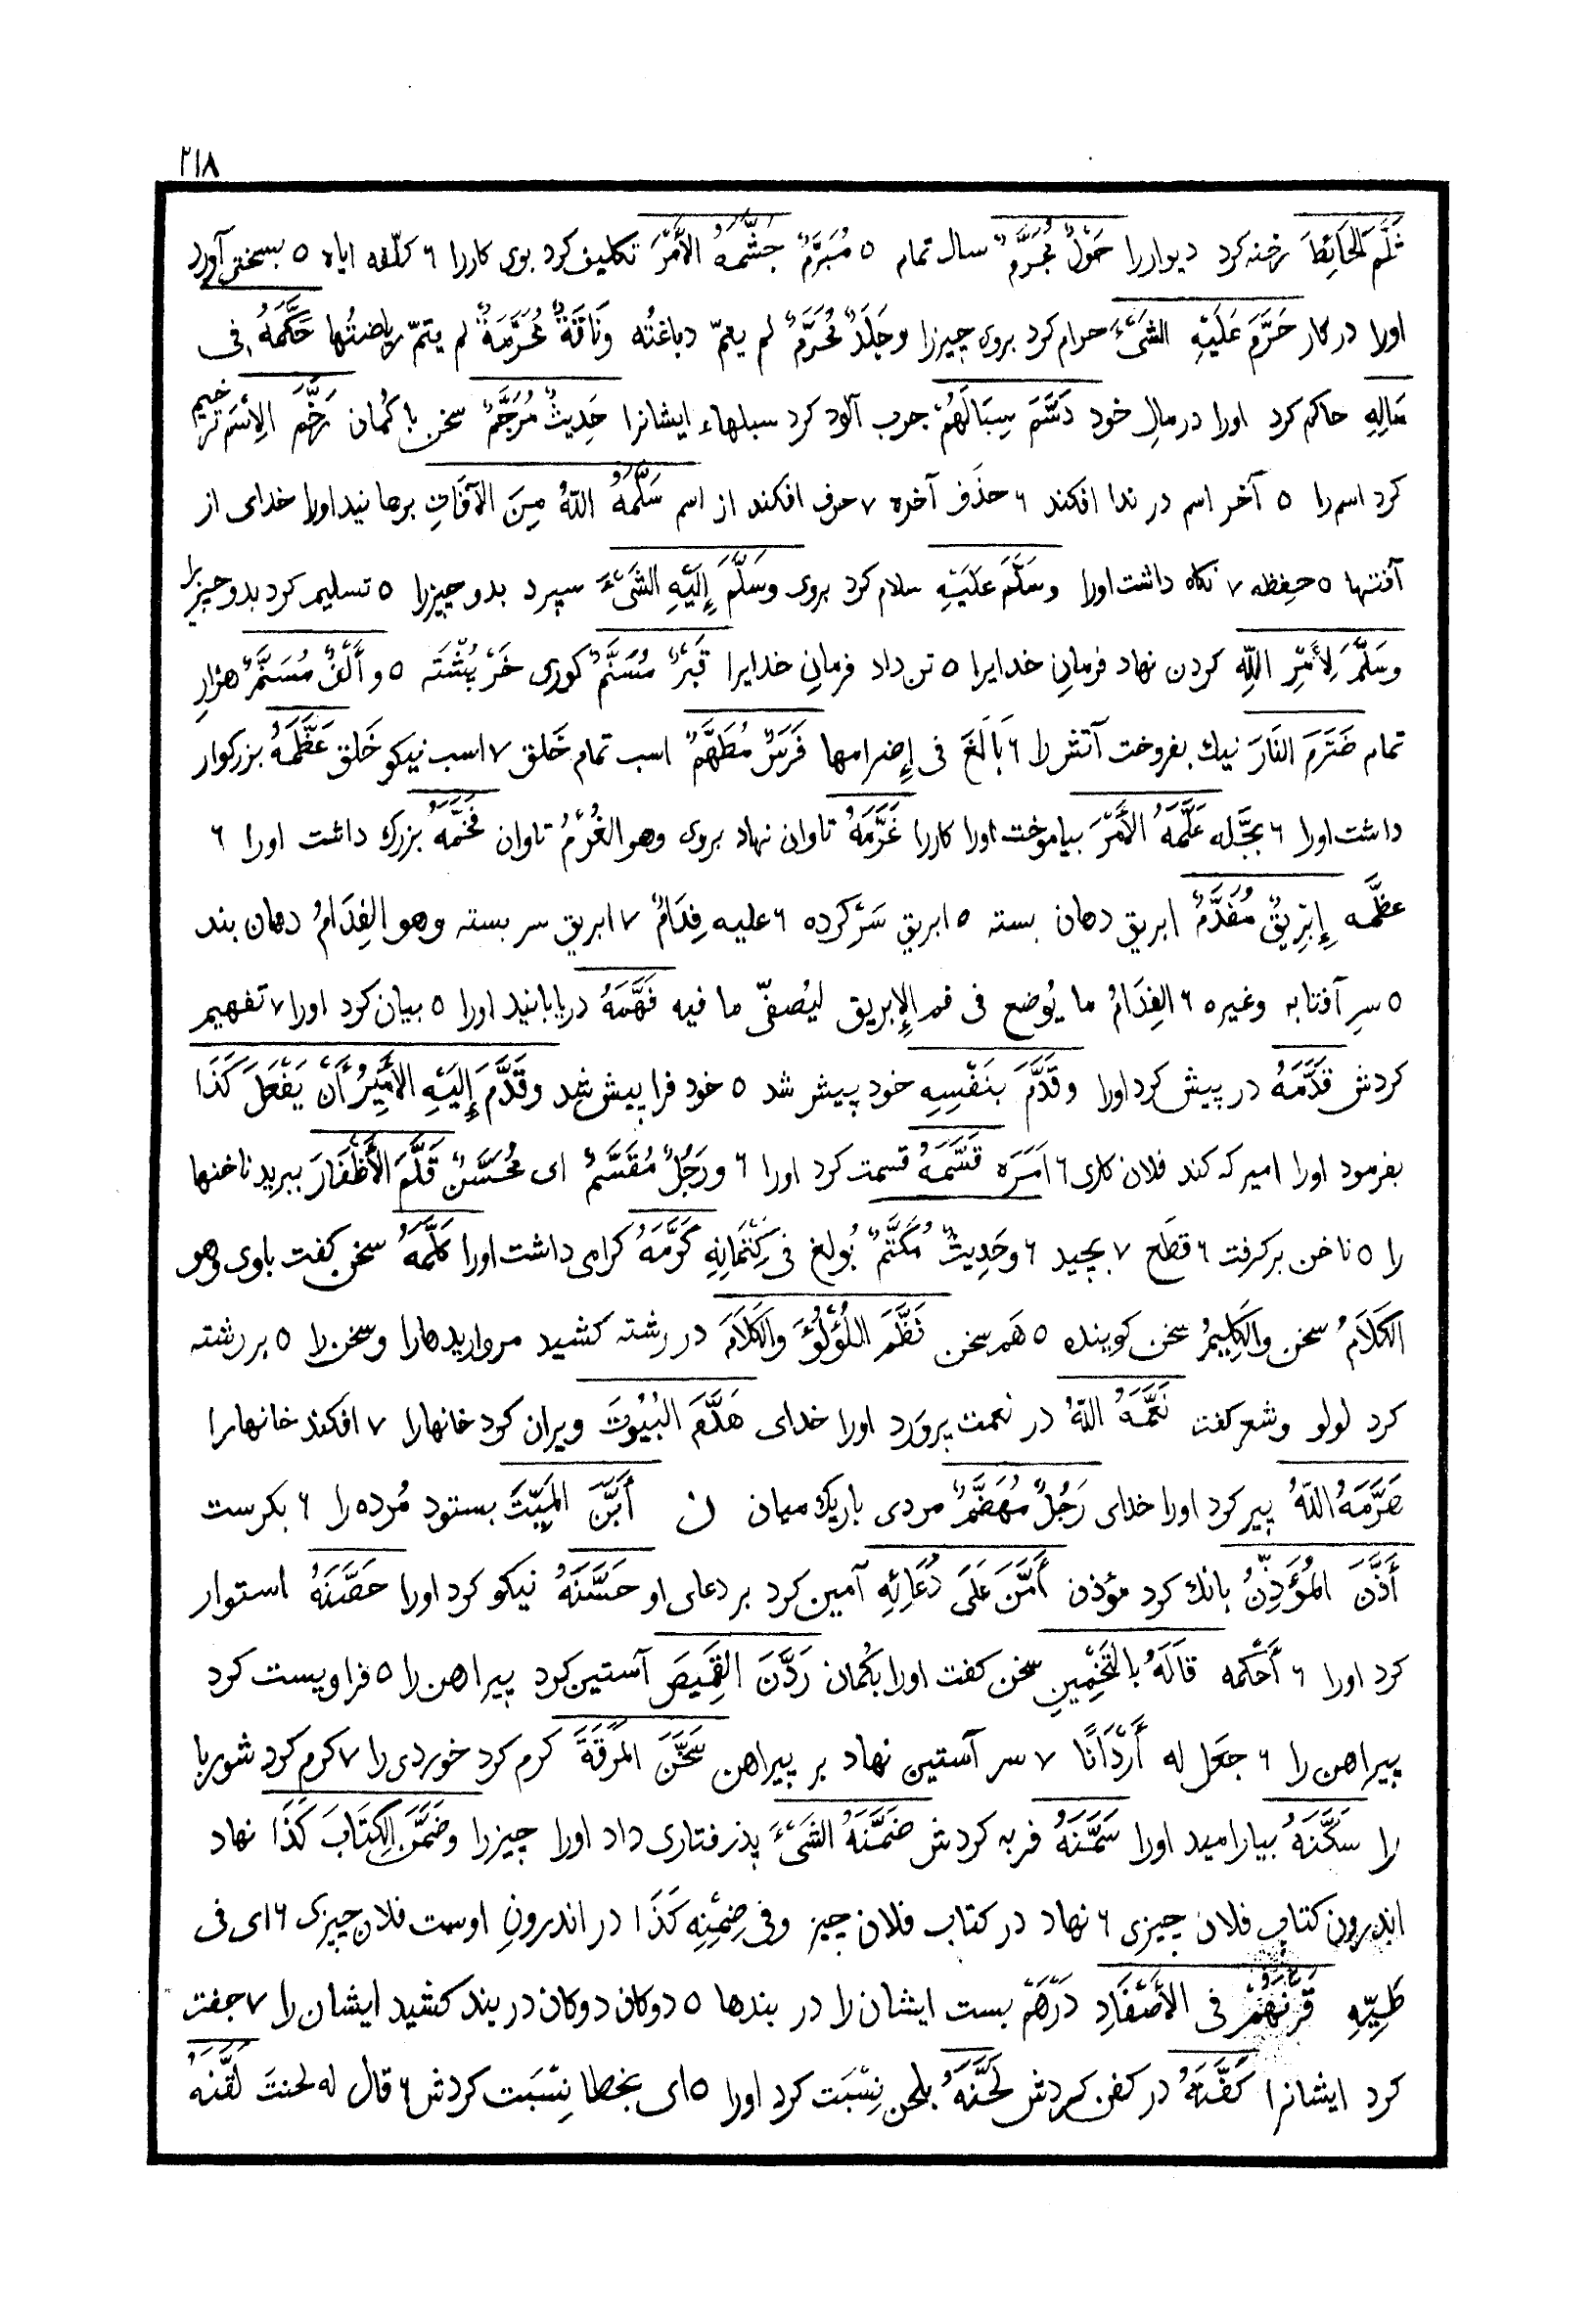 ۲۱۸
ثَلَّمَ الحَائِطَ رخنه کرد دیوار را حَوْلٌ مُجَرَّمٌ سال تمام ٥ مُبَرَّمٌ جَشَّمَهُ الأَمْرَ تکلیف کرد بوی کار را ٦ کلّفه ایاه ٥ بسختی آورد
اورا در کار حَرَّمَ عَلَیْهِ الشَیْءَ حرام کرد بروی چیزرا وجِلْدٌ مُحَرَّمٌ لم یعمّ دباغتُه وَنَاقَةٌ مُحَرَّمَةٌ لم یتمّ ریاضتُها حَکَّمَهُ فی
مَالِهِ حاکم کرد اورا در مالِ خود دَسَّمَ سِبَالَهُمْ چرب آلود کرد سبلهاء ایشانرا حَدِیثٌ مُرَجَّمٌ سخن با کُمان رَخَّمَ الإِسْمَ ترخیم
کرد اسم را ٥ آخر اسم در ندا افکند ٦ حذَف آخره ٧ حرف افکند از اسم سَلَّمَهُ اللّهُ مِنَ الآفَاتِ برهانید اورا خدای از
آفتها ٥ حِفظه ٧ نکاه داشت اورا وسَلَّمَ عَلَیْهِ سلام کرد بروی وسَلَّمَ إِلَیْهِ الشَیْءَ سپرد بدو چیزرا ٥ تسلیم کرد بدو چیزرا
وسَلَّمَ لِأَمْرِ اللّهِ کردن نهاد فرمانِ خدایرا ٥ تن داد فرمانِ خدایرا قَبْرٌ مُسَنَّمٌ کوری خَرْ پُشْتَه ٥ و أَلْفٌ مُسَنَّمٌ هزارِ
تمام ضَرَّمَ النَارَ نیك بفروخت آتش را ٦ بَالَغَ فی إِضرامها فَرَسٌ مُطَهَّمٌ اسب تمام خَلق ٧ اسب نیکو خَلق عَظَّمَهُ بزرکوار
داشت اورا ٦ بجَّله عَلَّمَهُ الأَمْرَ بیاموخت اورا کاررا غَرَّمَهُ تاوان نهاد بروی وهو الغُرْمُ تاوان فَخَّمَهُ بزرك داشت اورا ٦
عظَّمه إِبْرِیقٌ مُفَدَّمٌ ابریق دهان بسته ٥ ابریقِ سَرْ کرده ٦ علیه فِدَامٌ ٧ ابریق سر بسته وهو الفِدَامُ دهان بند
٥ سرِ آفتابه وغیره ٦ الفِدَامُ ما یُوضع فی فم الإبریق لیُصفّی ما فیه فَهَّمَهُ دریابانید اورا ٥ بیان کرد اورا ٧ تفهیم
کردش قَدَّمَهُ در پیش کرد اورا وقَدَّمَ بنَفْسِهِ خود پیش شد ٥ خود فرا پیش شد وقَدَّمَ إِلَیْهِ الأَمِیْرُ أَنْ یَفْعَلَ کَذَا
بفرمود اورا امیر که کند فلان کاری ٦ امَرَه قَسَّمَهُ قسمت کرد اورا ٦ ورَجُلٌ مُقَسَّمٌ ای مُحَسَّنٌ قَلَّمَ الأَظْفَارَ ببرید ناخنها
را ٥ ناخن بر کرفت ٦ قطَع ٧ بچید ٦ وحَدِیثٌ مُکَتَّمٌ بُولغ فی کِتْمَانِهِ کَرَّمَهُ کرامی داشت اورا کَلَّمَهُ سخن کفت باوی وهو
الکَلَامُ سخن والکَلِیمُ سخن کوینده ٥ هَم سخن نَظَّمَ اللُؤْلُؤَ والکَلَامَ در رشته کشید مرواریدهارا وسخن را ٥ بر رشته
کرد لولو وشعر کفت نَعَّمَهُ اللّهُ در نعمت پرورد اورا خدای هَدَّمَ البُیُوتَ ویران کرد خانهارا ٧ افکند خانهارا
هَرَّمَهُ اللّهُ پیر کرد اورا خدای رَجُلٌ مُهَضَّمٌ مردی باریك میان ن أَبَّنَ المَیِّتَ بستود مُرده را ٦ بکرست
أَذَّنَ المُؤَذِّنُ بانك کرد مؤذن أَمَّنَ عَلَی دُعَائِهِ آمین کرد بر دعای او حَسَّنَهُ نیکو کرد اورا حَصَّنَهُ استوار
کرد اورا ٦ أَحْکمه قَالَهُ بالتَخْمِینِ سخن کفت اورا بکُمان رَدَّنَ القَمِیصَ آستین کرد پیراهن را ٥ فراویست کرد
پیراهن را ٦ جعَل له أَرْدَانًا ٧ سر آستین نهاد بر پیراهن سَخَّنَ المَرَقَةَ کرم کرد خوردی را ٧ کرم کرد شوربا
را سَکَّنَهُ بیارامید اورا سَمَّنَهُ فربه کردش ضَمَّنَهُ الشَیْءَ پذرفتاری داد اورا چیزرا وضَمَّنَ الکِتَابَ کَذَا نهاد
اندرون کتاب فلان چیزی ٦ نهاد در کتاب فلان چیز وفی ضِمْنِهِ کَذَا در اندرونِ اوست فلان چیزی ٦ ای فی
طَیِّهِ قَرَّنَهُمْ فی الأَصْفَادِ دَرْهَمْ بست ایشان را در بندها ٥ دوکان دوکان در بند کشید ایشان را ٧ جفت
کرد ایشانرا کَفَّنَهُ در کفن کردش لَحَّنَهُ بلحن نِسْبَت کرد اورا ٥ ای بخطا نِسْبَت کردش ٦ قال له لحنتَ لَقَّنَهُ